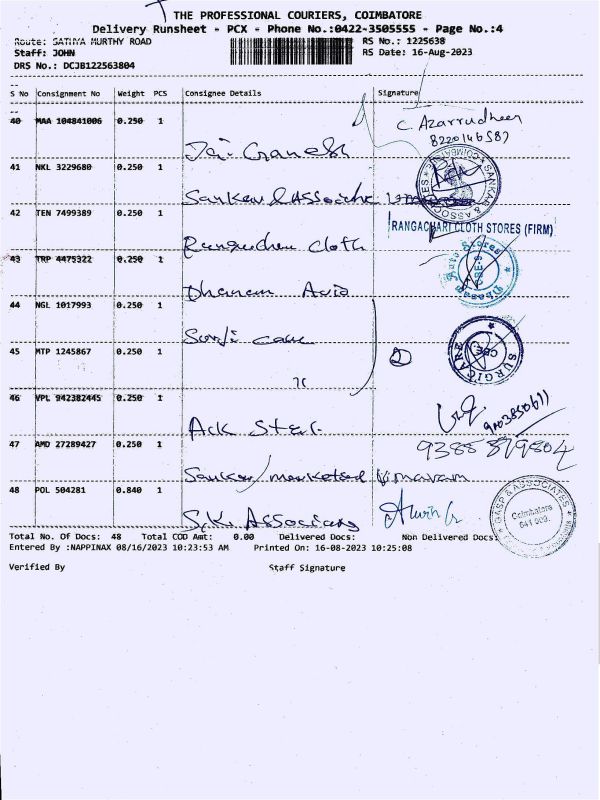 THE PROFESSIONAL COURIERS, COIMBATORE
Delivery Runsheet - PCX - Phone No.:0422-3505555 - Page No.:4
Route: SATHYA MURTHY ROAD RS No.: 1225638
Staff: JOHN RS Date: 16-Aug-2023
DRS No.: DCJB122563804
S No Consignment No Weight PCS Consignee Details Signature
40 MAA 104841006 0.250 1 C. Azarrudheen
8220146587
Jai Ganesh
41 NKL 3229680 0.250 1
SANKAR & ASSOCIATES COIMBATORE
Sankar & Associate
42 TEN 7499389 0.250 1 RANGACHARI CLOTH STORES (FIRM)
Rangachari Cloth
43 TRP 4475322 0.250 1
Auto Stores CBE-9
Dhanam Auto
44 NGL 1017993 0.250 1
Surji care
SURGICARE CBE
45 MTP 1245867 0.250 1 2
46 VPL 942382445 0.250 1
9003850611
Ack Steel
47 AMD 27289427 0.250 1 9385879804
Sankar marketed Vmaram
48 POL 504281 0.840 1
GASP & ASSOCIATES Coimbatore 641 009.
S.K. Associates
Total No. Of Docs: 48 Total COD Amt: 0.00 Delivered Docs: Non Delivered Docs:
Entered By :NAPPINAX 08/16/2023 10:23:53 AM Printed On: 16-08-2023 10:25:08
Verified By Staff Signature